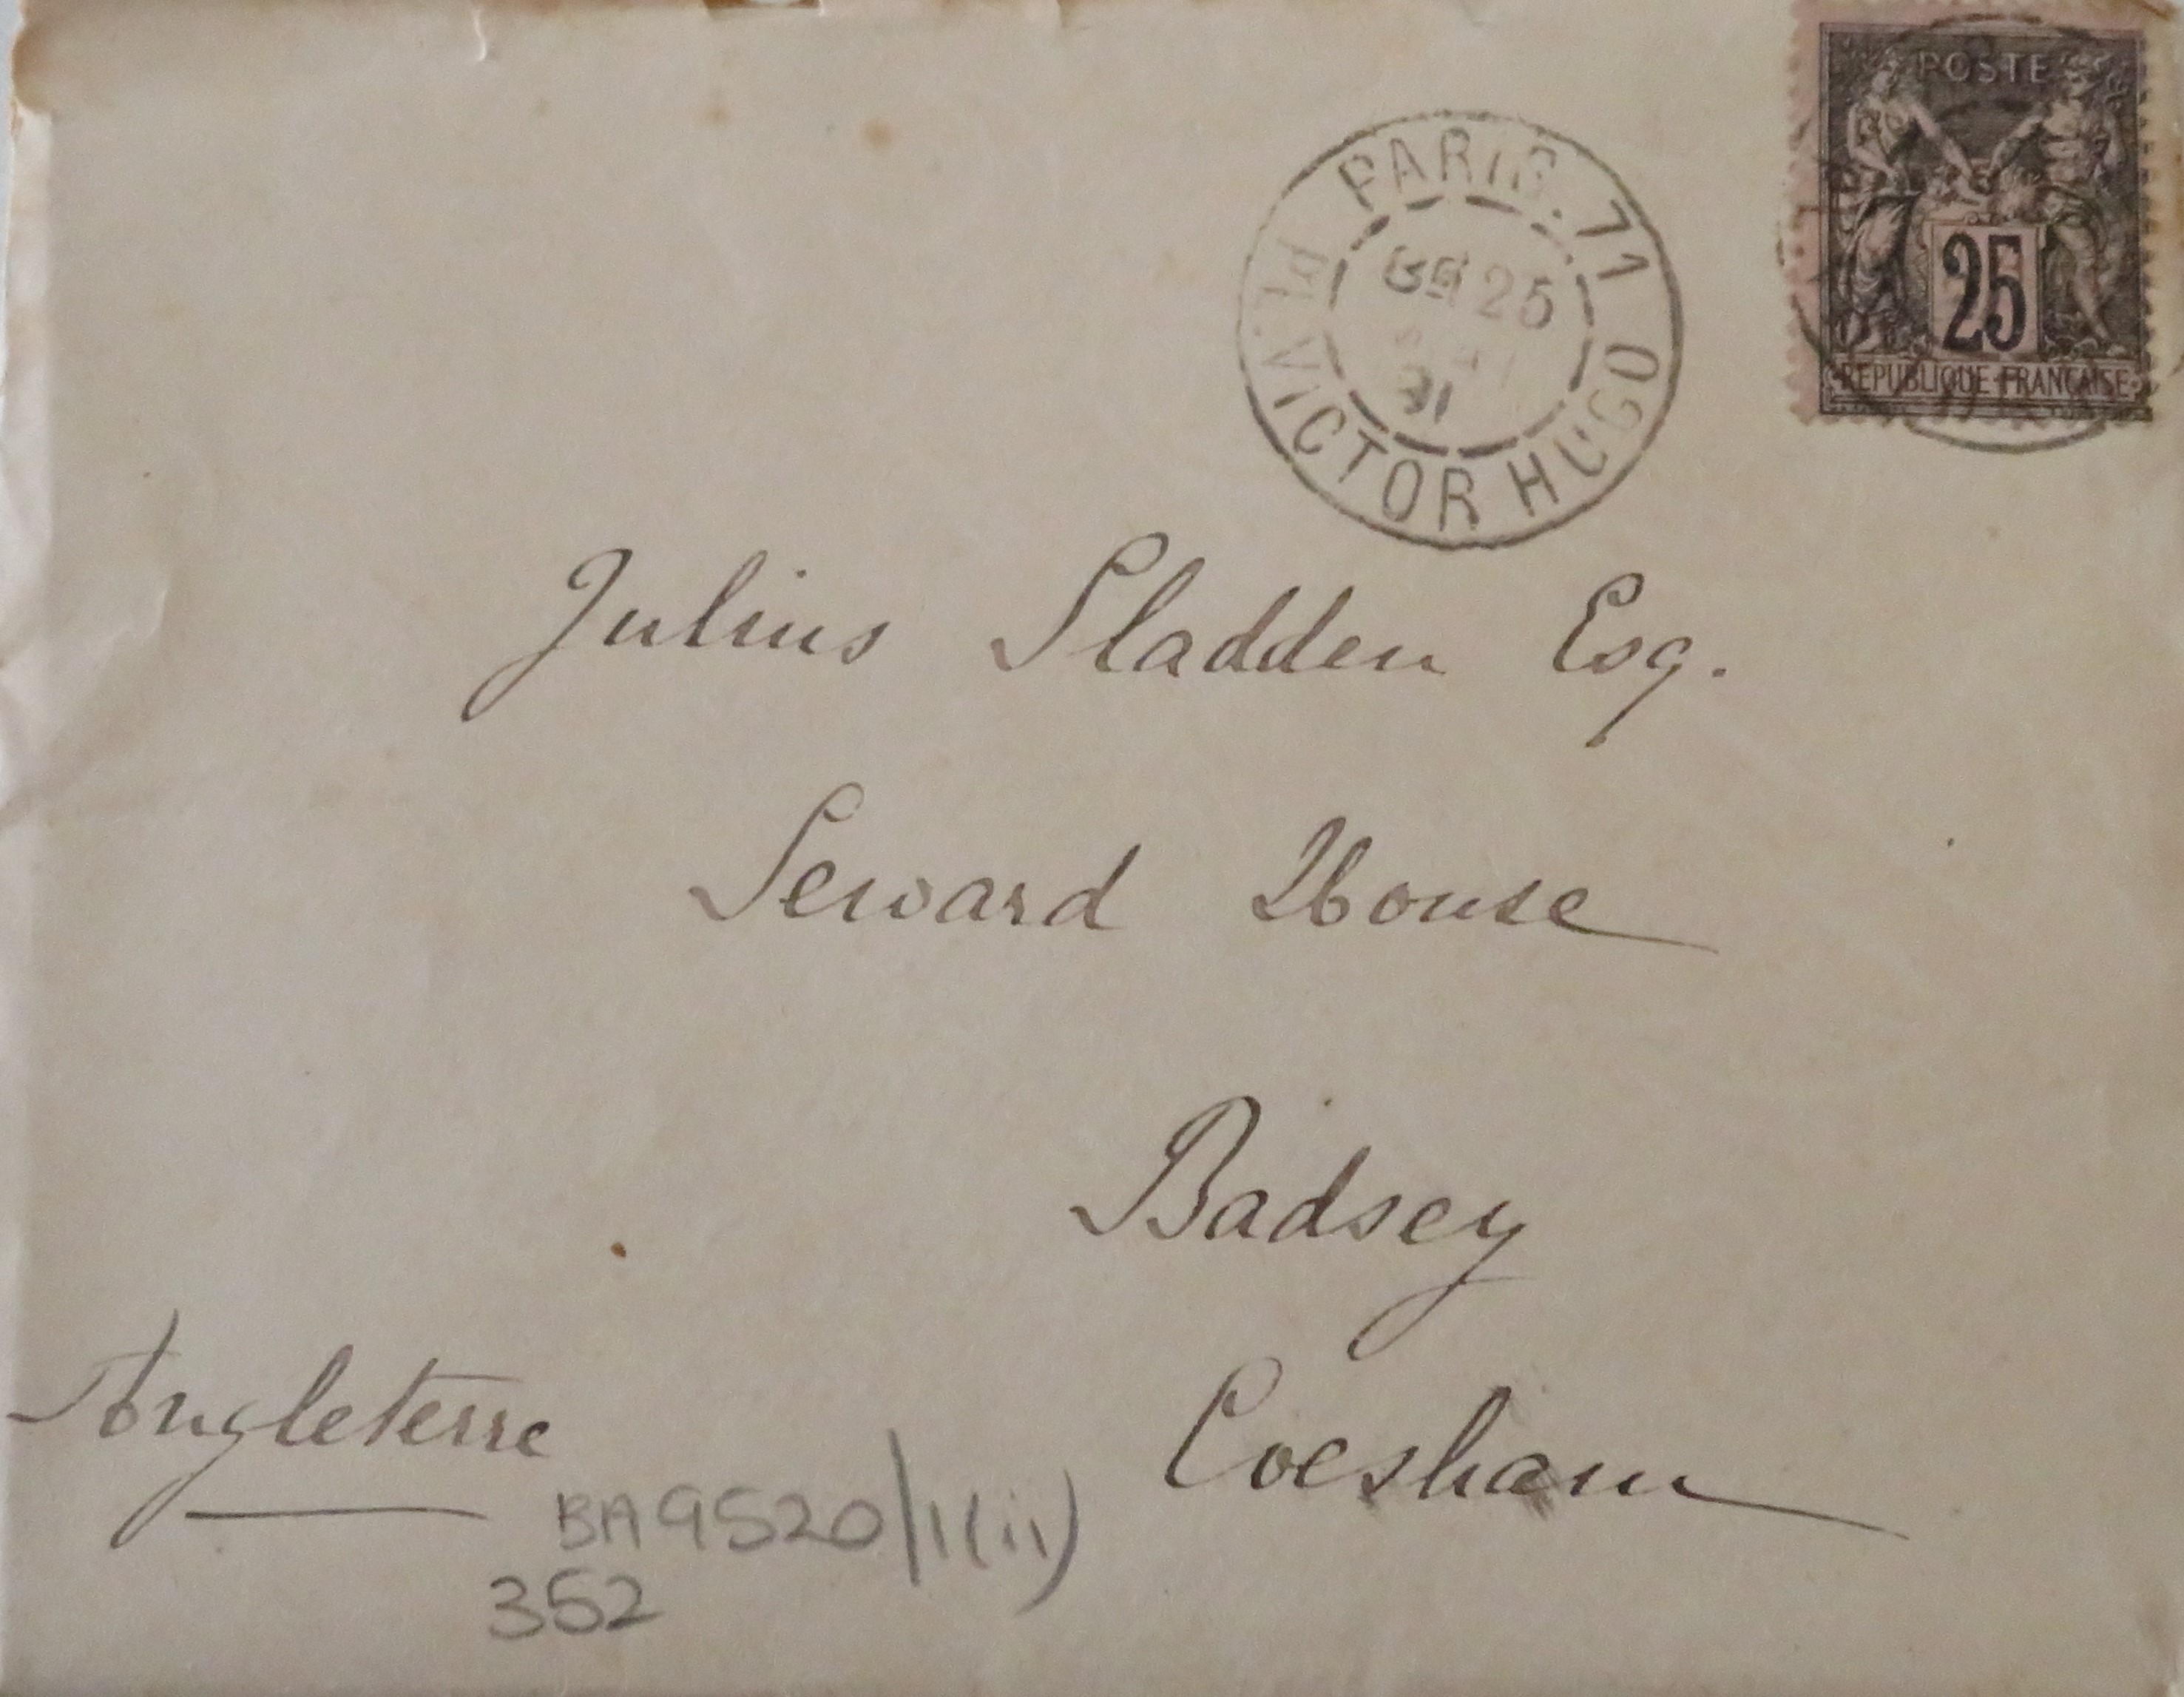 POSTE
25
REPUBLIQUE FRANCAISE
PARIS. 71
PL. VICTOR HUGO
25
91
Julius Sladden Esq.
Seward House
Badsey
Evesham
Angleterre
BA9520/1(ii)
352